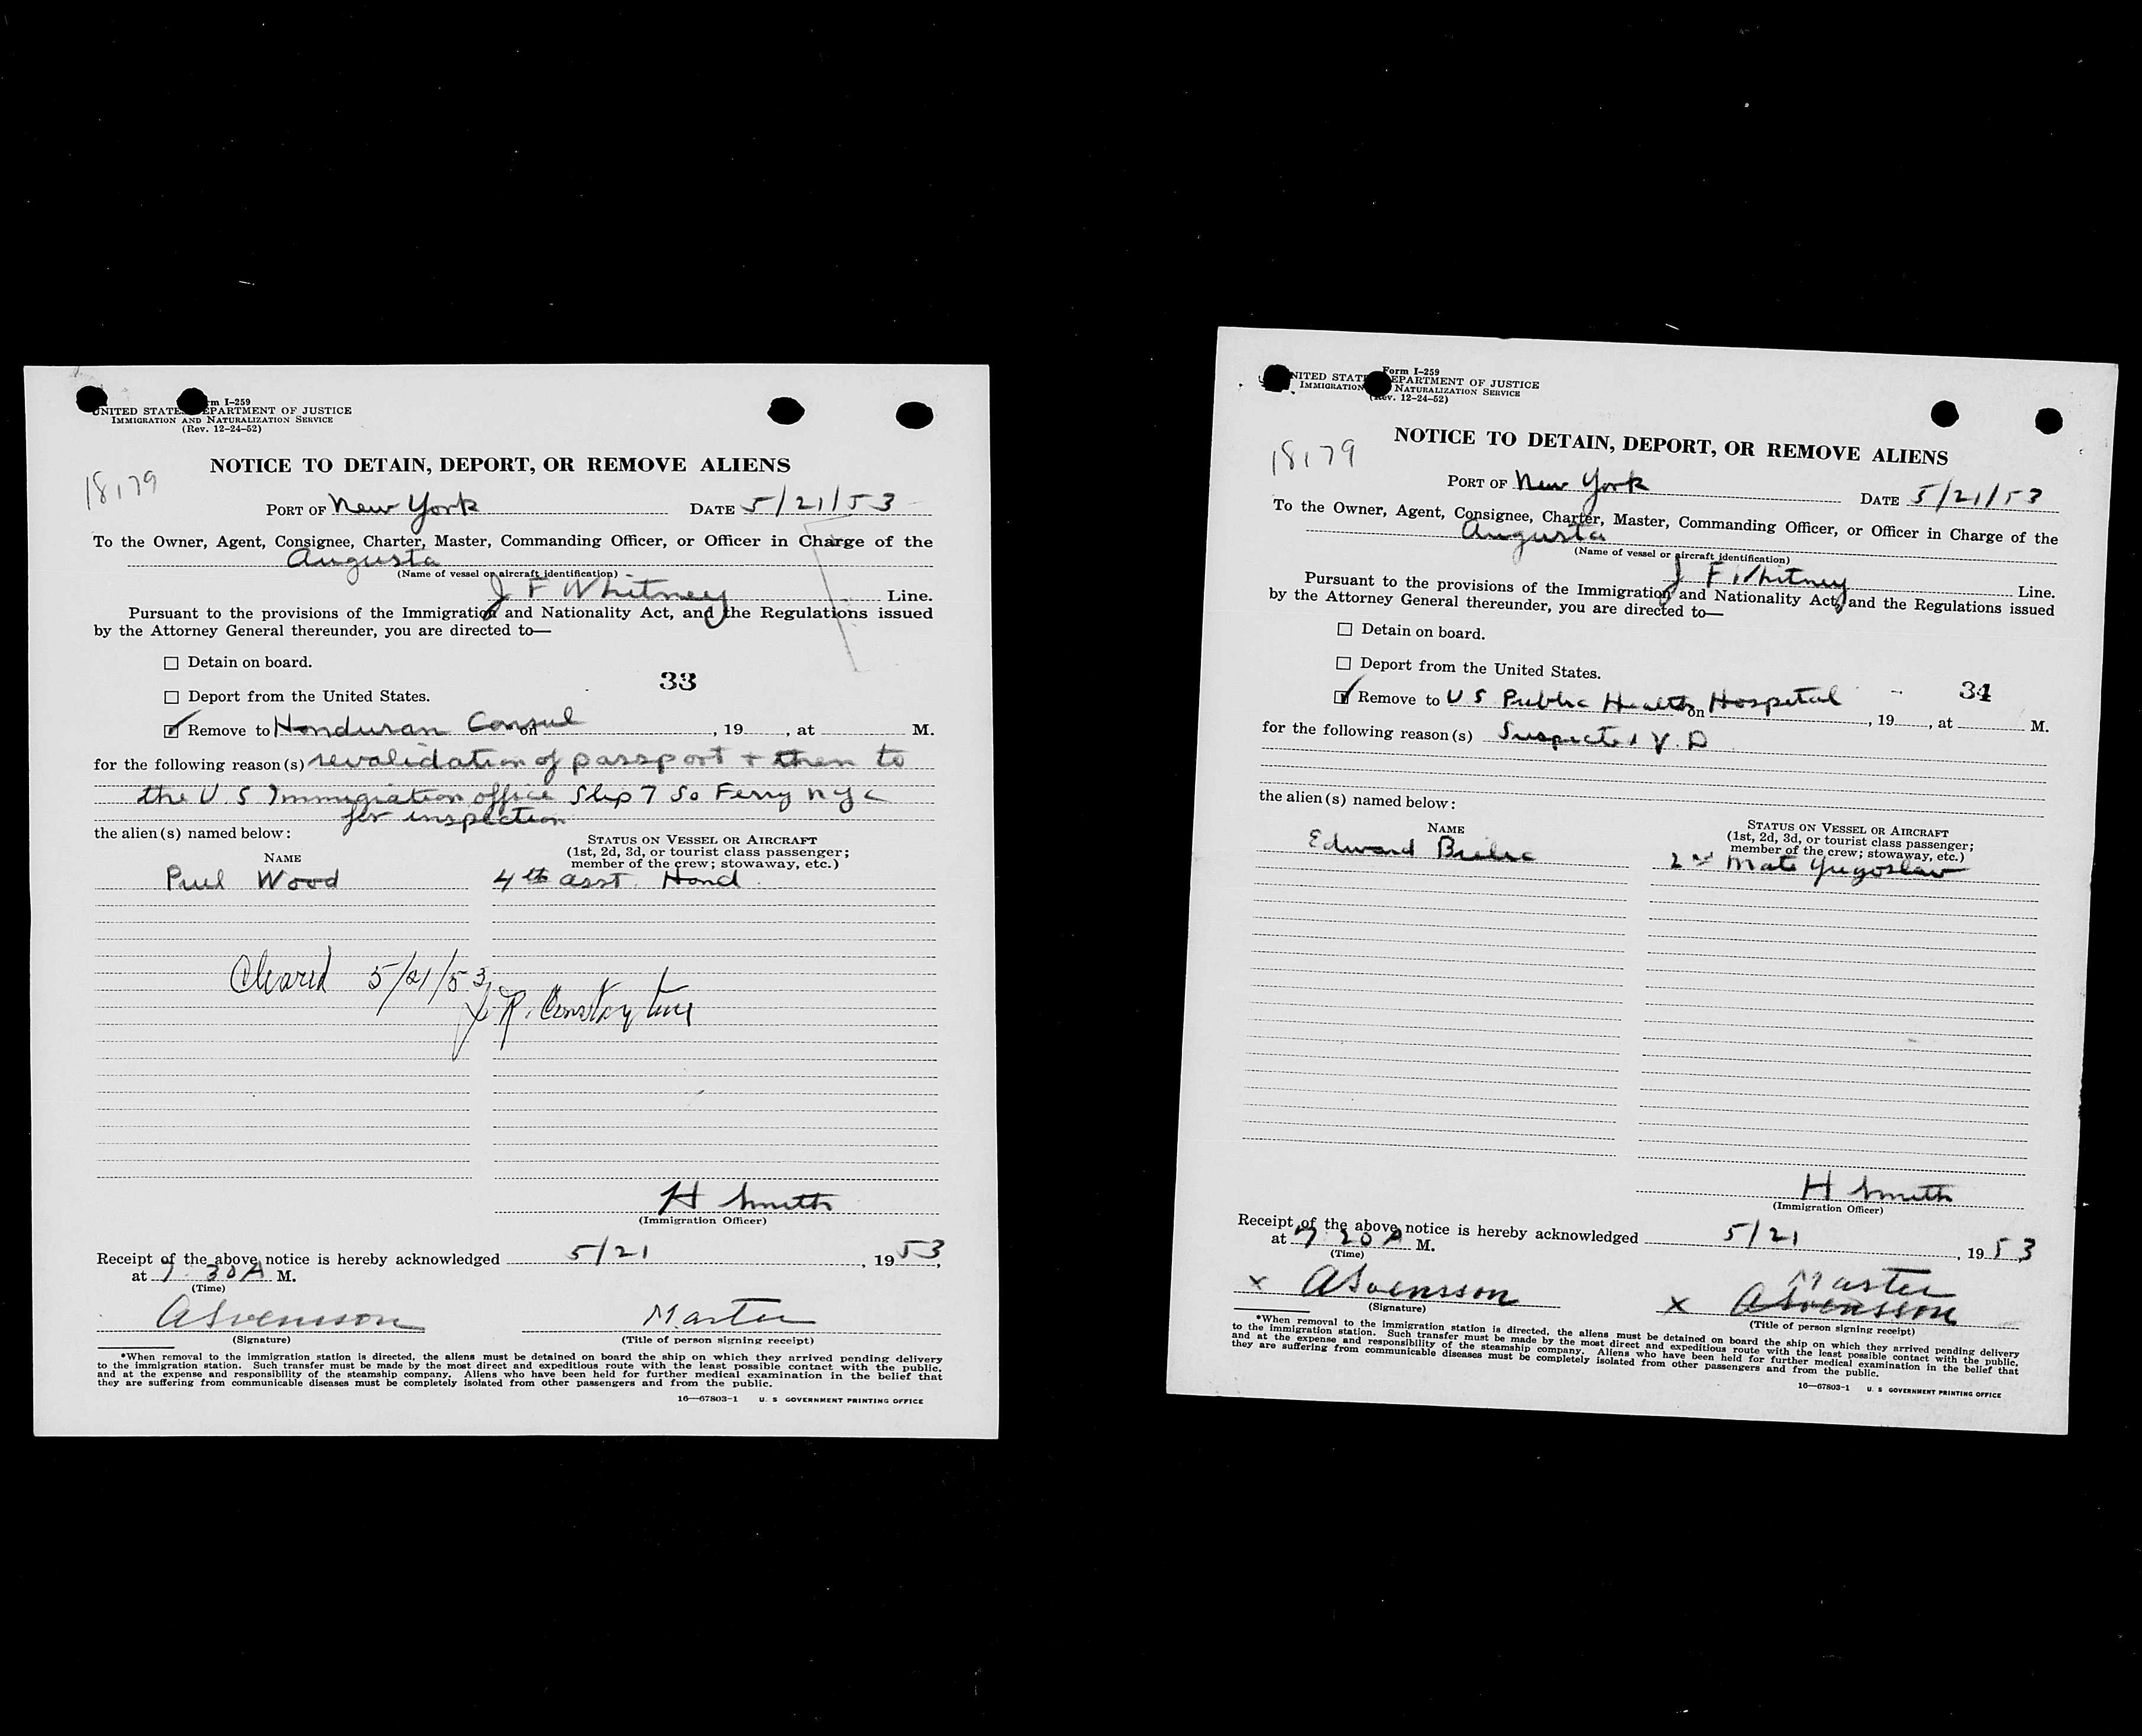 Form I-259
UNITED STATES DEPARTMENT OF JUSTICE
IMMIGRATION AND NATURALIZATION SERVICE
(Rev. 12-24-52)
NOTICE TO DETAIN, DEPORT, OR REMOVE ALIENS
18179
PORT OF New York DATE 5/21/53
To the Owner, Agent, Consignee, Charter, Master, Commanding Officer, or Officer in Charge of the
Augusta
(Name of vessel or aircraft identification)
J F Whitney Line.
Pursuant to the provisions of the Immigration and Nationality Act, and the Regulations issued
by the Attorney General thereunder, you are directed to—
Detain on board.
33
Deport from the United States.
Remove to Honduran Consul on , 19 , at M.
for the following reason(s) revalidation of passport + then to
the U.S Immigration office Slip 7 So Ferry NYC
for inspection
the alien(s) named below:
STATUS ON VESSEL OR AIRCRAFT
(1st, 2d, 3d, or tourist class passenger;
member of the crew; stowaway, etc.)
NAME
Paul Wood 4th asst. Hond.
Cleared 5/21/53
H Smith
(Immigration Officer)
Receipt of the above notice is hereby acknowledged 5/21 , 1953,
at 7 30 A M.
(Time)
ASvensson Master
(Signature) (Title of person signing receipt)
*When removal to the immigration station is directed, the aliens must be detained on board the ship on which they arrived pending delivery
to the immigration station. Such transfer must be made by the most direct and expeditious route with the least possible contact with the public,
and at the expense and responsibility of the steamship company. Aliens who have been held for further medical examination in the belief that
they are suffering from communicable diseases must be completely isolated from other passengers and from the public.
16—67803-1 U. S GOVERNMENT PRINTING OFFICE
Form I-259
UNITED STATES DEPARTMENT OF JUSTICE
IMMIGRATION NATURALIZATION SERVICE
(Rev. 12-24-52)
NOTICE TO DETAIN, DEPORT, OR REMOVE ALIENS
18179
PORT OF New York DATE 5/21/53
To the Owner, Agent, Consignee, Charter, Master, Commanding Officer, or Officer in Charge of the
Augusta
(Name of vessel or aircraft identification)
J F Whitney Line.
Pursuant to the provisions of the Immigration and Nationality Act, and the Regulations issued
by the Attorney General thereunder, you are directed to—
Detain on board.
Deport from the United States.
34
Remove to U S Public Health Hospital on , 19 , at M.
for the following reason(s) Suspected V.D
the alien(s) named below:
STATUS ON VESSEL OR AIRCRAFT
(1st, 2d, 3d, or tourist class passenger;
member of the crew; stowaway, etc.)
NAME
Edward 2nd Mate Yugoslav
H Smith
(Immigration Officer)
Receipt of the above notice is hereby acknowledged 5/21 , 1953
at 7 20 A M.
(Time)
Master
x ASvensson x ASvensson
(Signature) (Title of person signing receipt)
*When removal to the immigration station is directed, the aliens must be detained on board the ship on which they arrived pending delivery
to the immigration station. Such transfer must be made by the most direct and expeditious route with the least possible contact with the public,
and at the expense and responsibility of the steamship company. Aliens who have been held for further medical examination in the belief that
they are suffering from communicable diseases must be completely isolated from other passengers and from the public.
16—67803-1 U. S GOVERNMENT PRINTING OFFICE